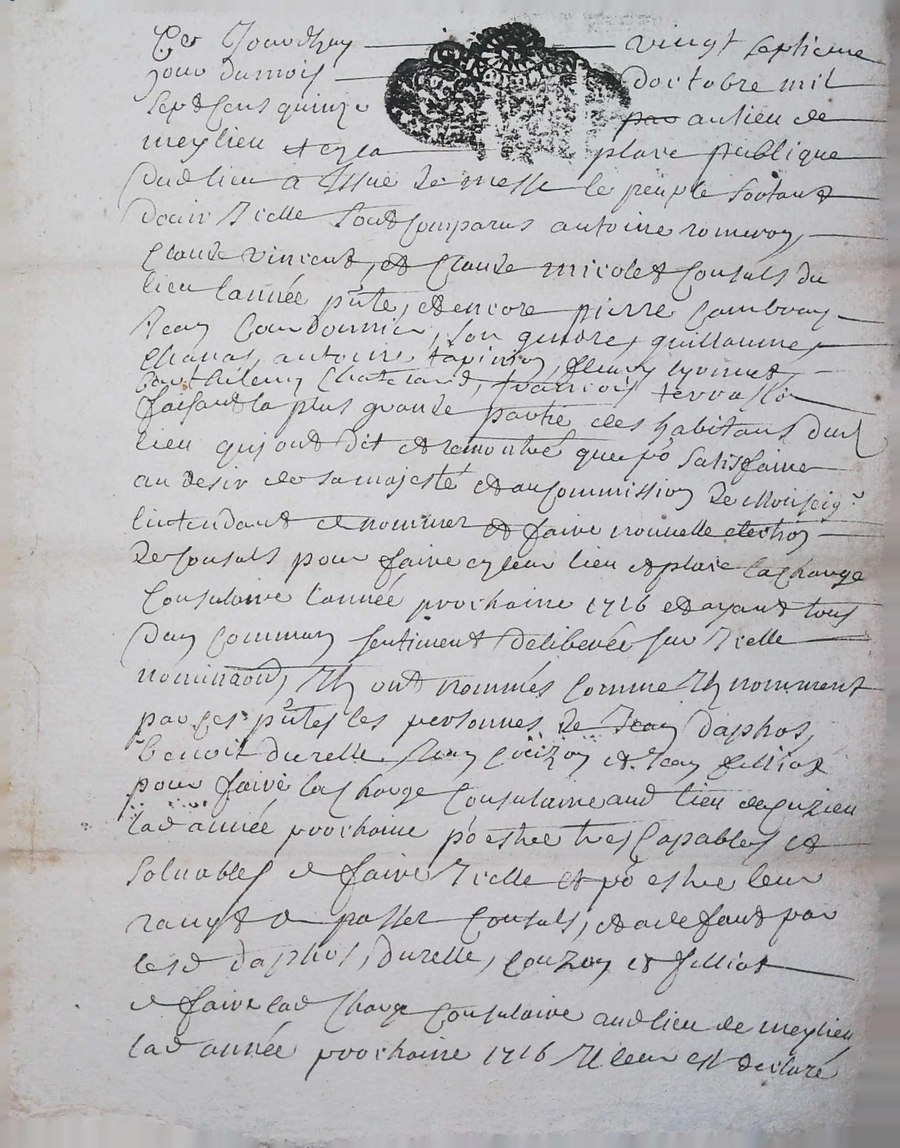 Ce Jourdhuy vingt septieme
jour du mois doctobre mil
sept Cens quinze par au lieu de
meylieu et en la place publique
dud lieu a Issue de messe le peuple sortant
douir Icelle sont Comparus antoine romeyon
Claude vincent, et Claude micolet Consuls du
lieu lannée pnte, et encore pierre
Jean Cordonnier, son gendre, guillaume
Chanas, antoine tapinon, fleury
Barthelemy Chatelard, francois terrasse
faisant la plus grande partie des habitans dud
lieu qui ont dit et remontré que po satisfaire
au desir de sa majesté et au Commission de Monseigr
lintendant de nommer et faire nouvelle election
de Consuls pour faire en leur lieu et place la Charge
Consulaire lannée prochaine 1716 et ayant tous
dun Commun sentiment deliberée sur Icelle
nominaon, Ils ont nommés Comme Ils nomment
par Ces pntes les personnes de Jean daphos,
benoit durelle, Couzon et Jean filliat
pour faire la Charge Consulaire aud lieu de
lad année prochaine po estre tres Capables et
solvables de faire Icelle et po estre leur
rangt de passer Consuls, et a defaut par
lesd daphos, durelle, Couzon et filliat
de faire lad Charge Consulaire aud lieu de meylieu
lad année prochaine 1716 Il leur est declaré